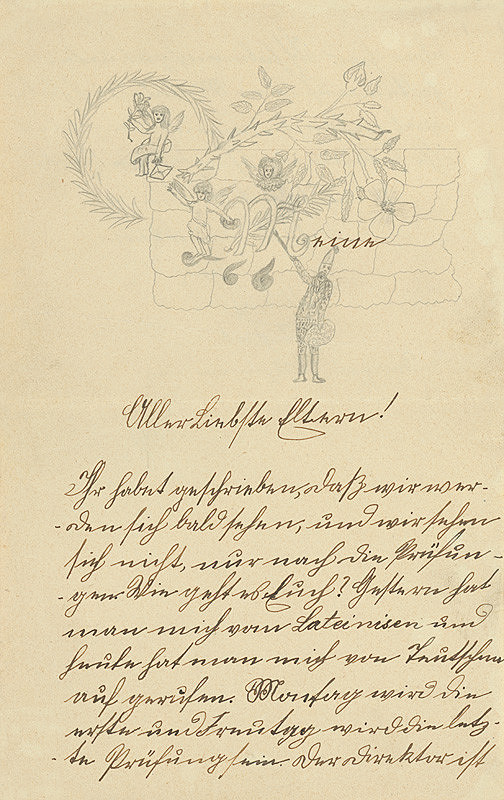 Meine
Aller Liebste Eltern!
Ihr habet geschrieben, daß wir wer-
-den sich bald sehen, und wir sehen
sich nicht, nur nach die Prüfun-
-gen. Wie geht es Euch? Gestern hat
man mich vom Lateinisen und
heute hat man mich von Teutschen
auf gerufen. Montag wird die
erste und Freutag wird die letz-
-te Prüfung sein. Der Direktor ist